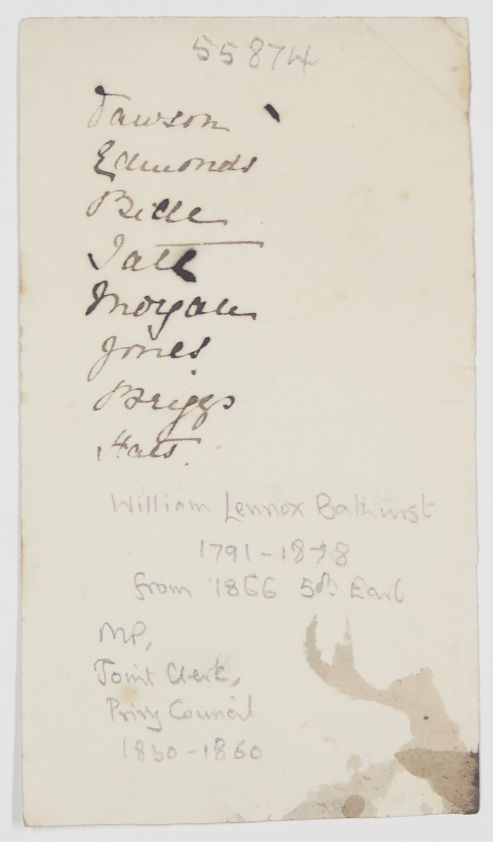 55874
Dawson
Edmonds
Tate
Morgan
Jones
Briggs
William Lennox Bathurst
1791-1878
from 1866 5th Earl
MP,
Joint Clerk,
Privy Council
1830-1860